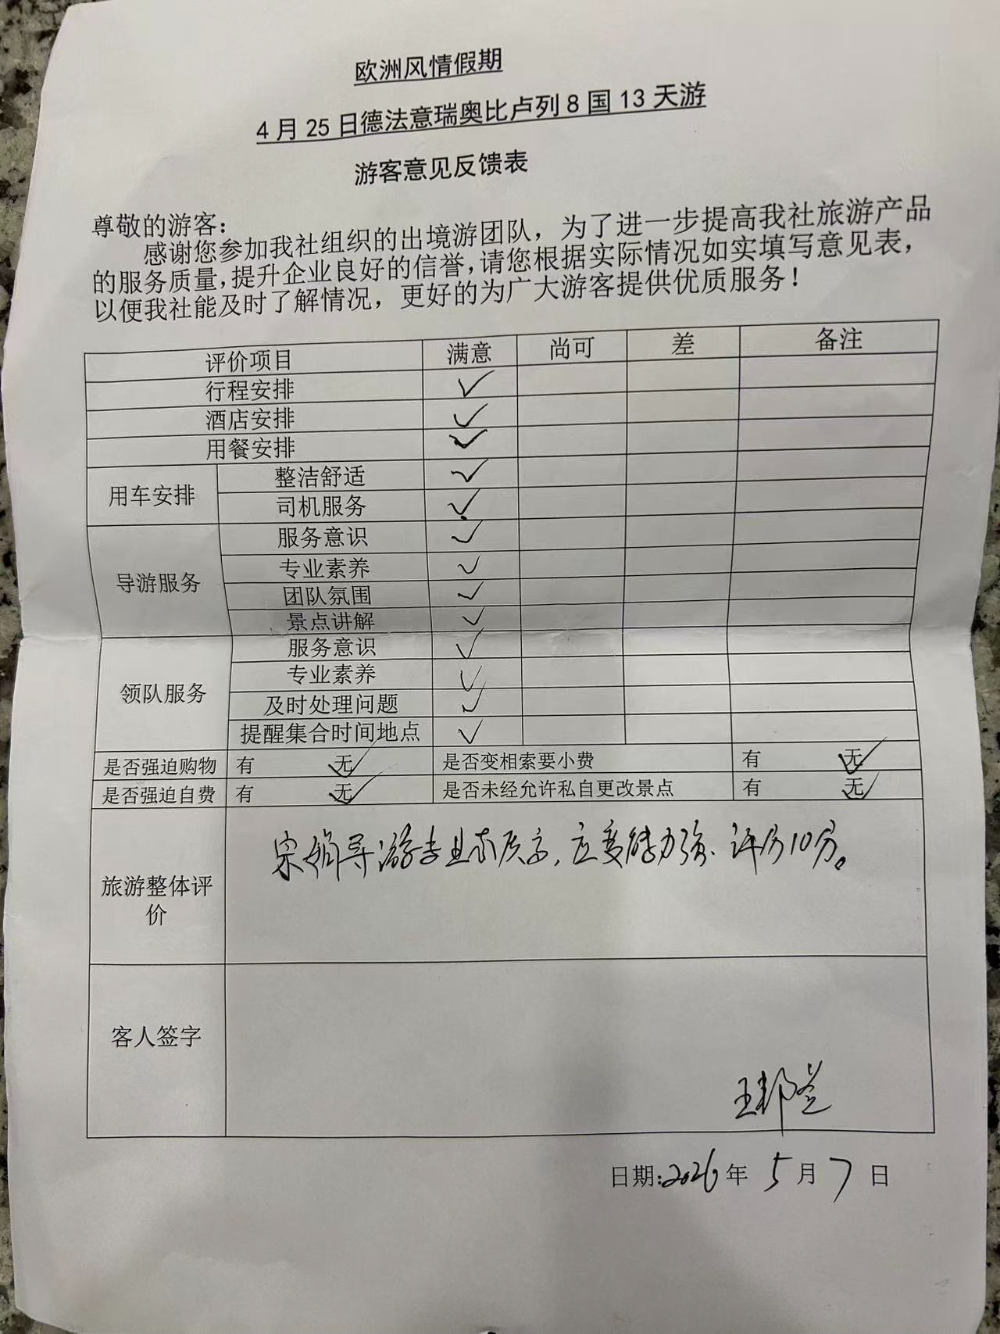 欧洲风情假期
4月25日德法意瑞奥比卢列8国13天游
游客意见反馈表
尊敬的游客：
感谢您参加我社组织的出境游团队，为了进一步提高我社旅游产品
的服务质量，提升企业良好的信誉，请您根据实际情况如实填写意见表，
以便我社能及时了解情况，更好的为广大游客提供优质服务！
评价项目 满意 尚可 差 备注
行程安排 ✓
酒店安排 ✓
用餐安排 ✓
用车安排
整洁舒适 ✓
司机服务 ✓
导游服务
服务意识 ✓
专业素养 ✓
团队氛围 ✓
景点讲解 ✓
领队服务
服务意识 ✓
专业素养 ✓
及时处理问题 ✓
提醒集合时间地点 ✓
是否强迫购物 有 无✓ 是否变相索要小费 有 无✓
是否强迫自费 有 无✓ 是否未经允许私自更改景点 有 无✓
旅游整体评
价
宋娟导游专业素质高，应变能力强、评分10分。
客人签字
王邦兰
日期:2026年5月7日